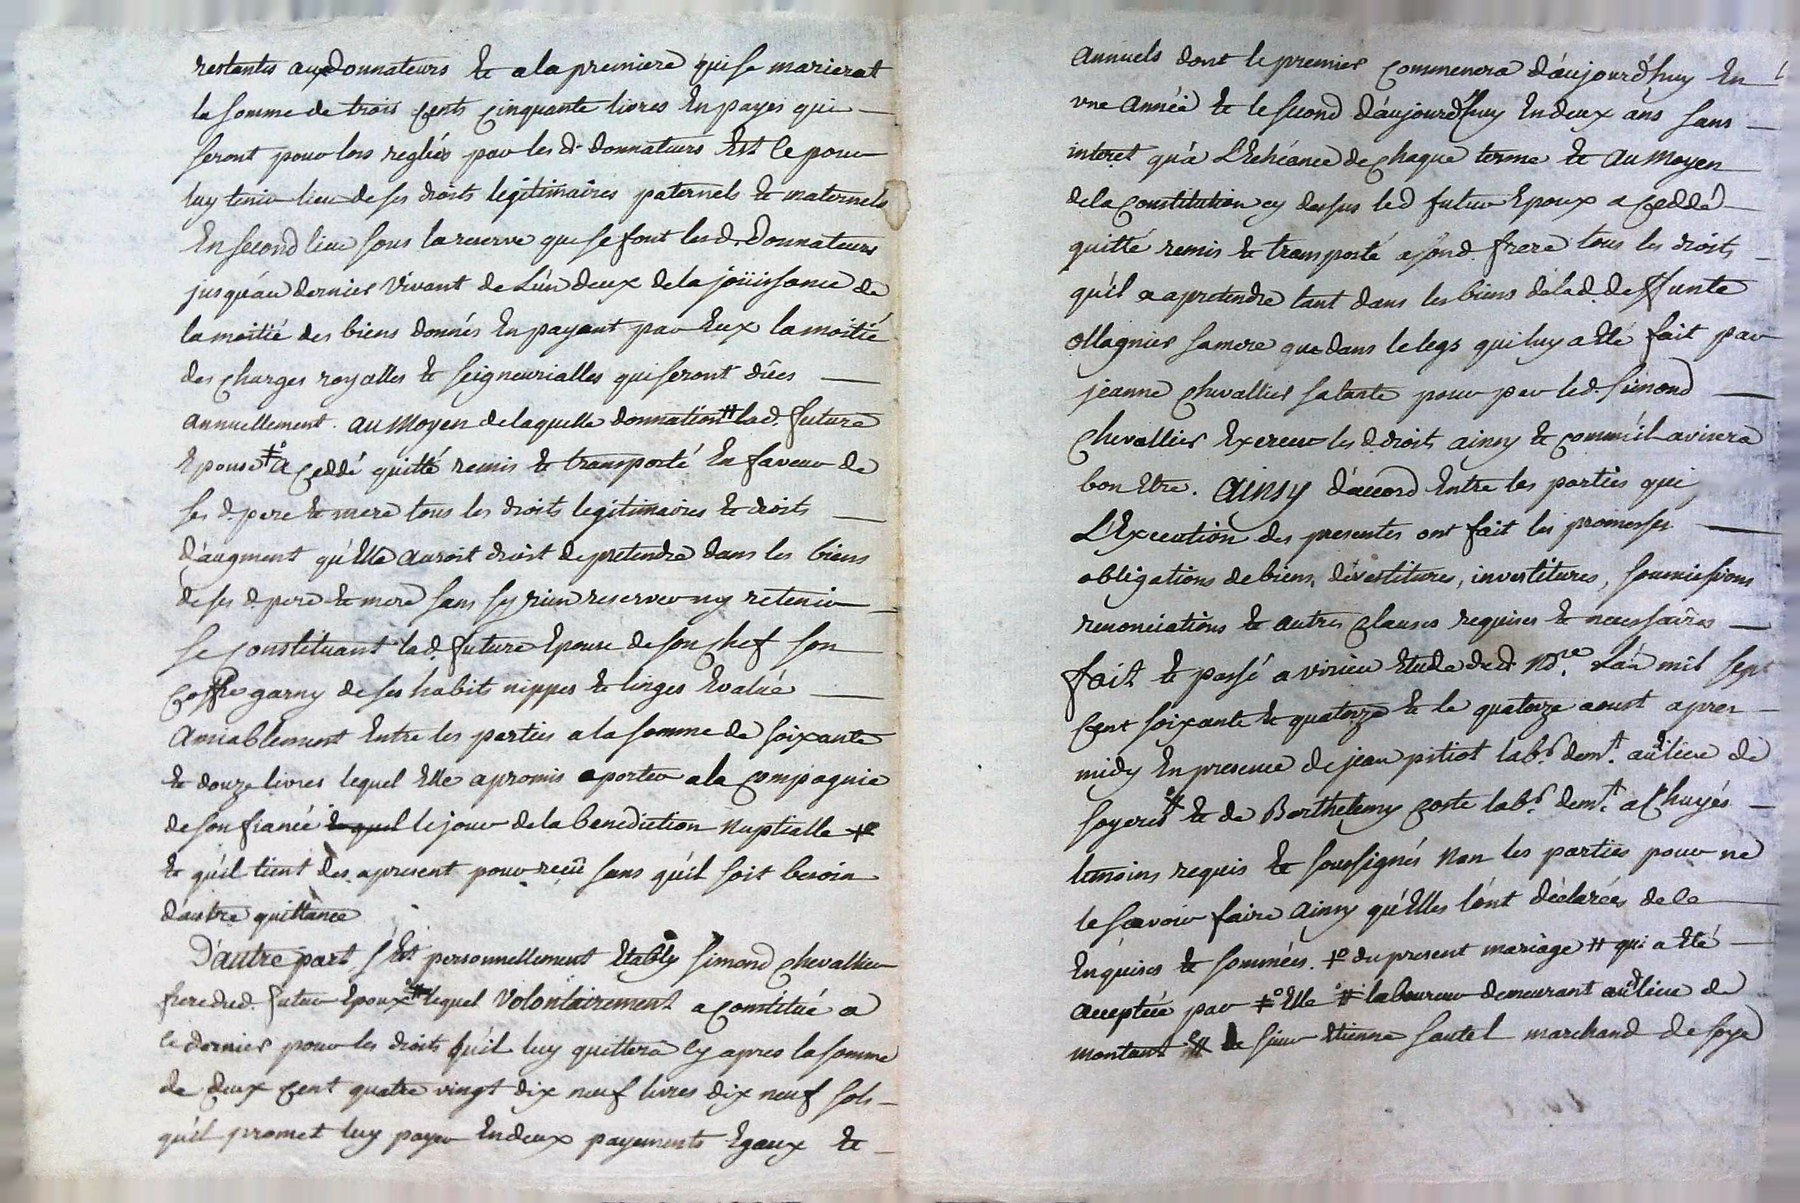 restantes aux donnateurs & a la premiere qui se marierat
la somme de trois cents cinquante livres En payes qui
seront pour lors reglées par les d. donnateurs Est ce pour
luy tenir lieu de ses droits legitimaires paternels & maternels
En second lieu sous la reserve que se font les d. Donnateurs
jusqu'au dernier vivant de L'un deux de la joüissance de
la moitié des biens donnés En payant par Eux la moitié
des charges royalles & seigneurialles qui seront dües
annuellement. au moyen de laquelle donnation # lad. future
Epouse ‡ a ceddé quitté remis & transporté En faveur de
ses d. pere & mere tous les droits legitimaires & droits
d'augment qu'Elle auroit droit de pretendre dans les biens
de ses d. pere & mere sans sy rien reserver ny retenir
se constituant lad. future Epouse de son chef son
coffre garny de ses habits nippes & linges Evalué
amiablement Entre les parties a la somme de soixante
& douze livres lequel Elle a promis aporter a la compagnie
de son fiancé le jour de la benediction nuptialle +o
& qu'il tient des a present pour reçu sans qu'il soit besoin
d'autre quittance
D'autre part s'Est personnellement Etably simond chevallier
frere dud. futur Epoux # lequel volontairement a constitué a
ce dernier pour les droits qu'il luy quittera cy apres la somme
de deux cent quatre vingt dix neuf livres dix neuf sols
qu'il promet luy payer En deux payements Egaux &
annuels dont le premier commencera d'aujourd'huy En
une année & le second d'aujourd'huy En deux ans sans
interet qu'a L'Echéance de chaque terme & au moyen
de la constitution cy dessus led futur Epoux a ceddé
quitté remis & transporté a sond. frere tous les droits
qu'il a a pretendre tant dans les biens de lad. deffunte
ollagnier sa mere que dans le legs qui luy a Eté fait par
jeanne chevallier sa tante pour par led. simond
chevallier Exercer les d. droits ainsy & comm'il avisera
bon Etre. ainsy d'accord Entre les parties qui
L'Execution des presentes ont fait les promesses
obligations de biens, devestitures, investitures, soumissions
renonciations & autres clauses requises & necessaires
fait & passé a virieu Etude dud. Nre. L'an mil sept
cent soixante & quatorze & le quatorze aoust apres
midy En presence de jean pitiot labr. demt. au d. lieu de
soyeres # & de Barthelemy coste labr. demt. a chuyés
temoins requis & soussignés non les parties pour ne
le sçavoir faire ainsy qu'Elles l'ont déclarées de ce
Enquises & sommées. +o du present mariage # qui a Eté
acceptée par ‡o Elle # laboureur demeurant au d. lieu de
montant # sieur Etienne sautel marchand de soye